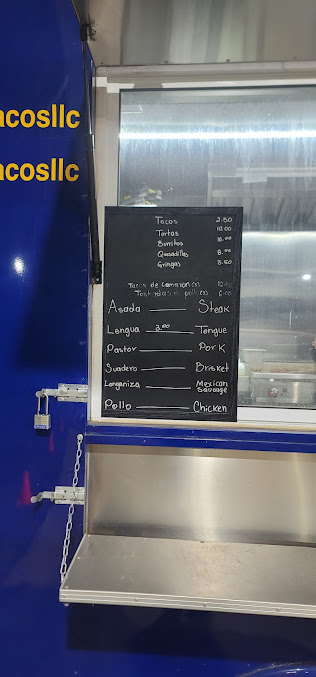 acosllc
acosllc
Tacos 2.50
Tortas 10.00
Burritos 10.00
Quesadillas 8.00
Gringas 3.50
Tacos de camaron
Asada Steak
Lengua 3.00 Tongue
Pastor Pork
Suadero Brisket
Longaniza Mexican
Sausage
Pollo Chicken